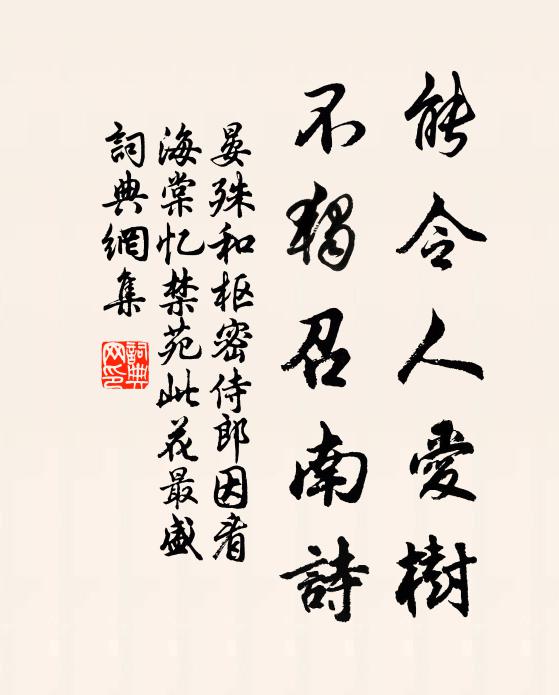 能令人愛樹
不獨召南詩
晏殊和枢密侍郎因看
海棠忆禁苑此花最盛
詞典網集
詞典
网印